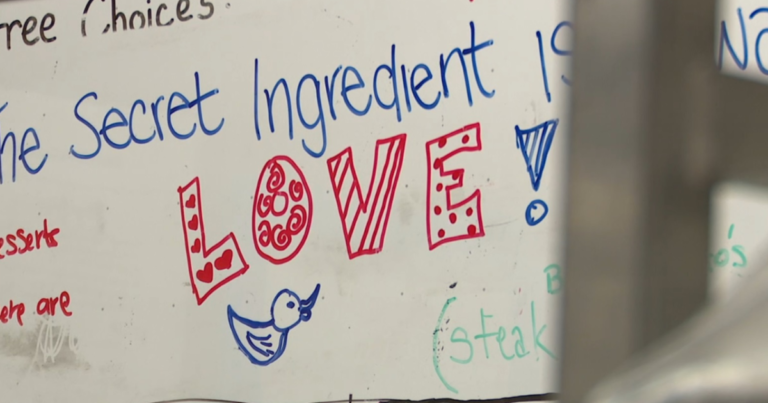 ree Choices.
he Secret Ingredient is
LOVE!
esserts
ere are
(steak
o's